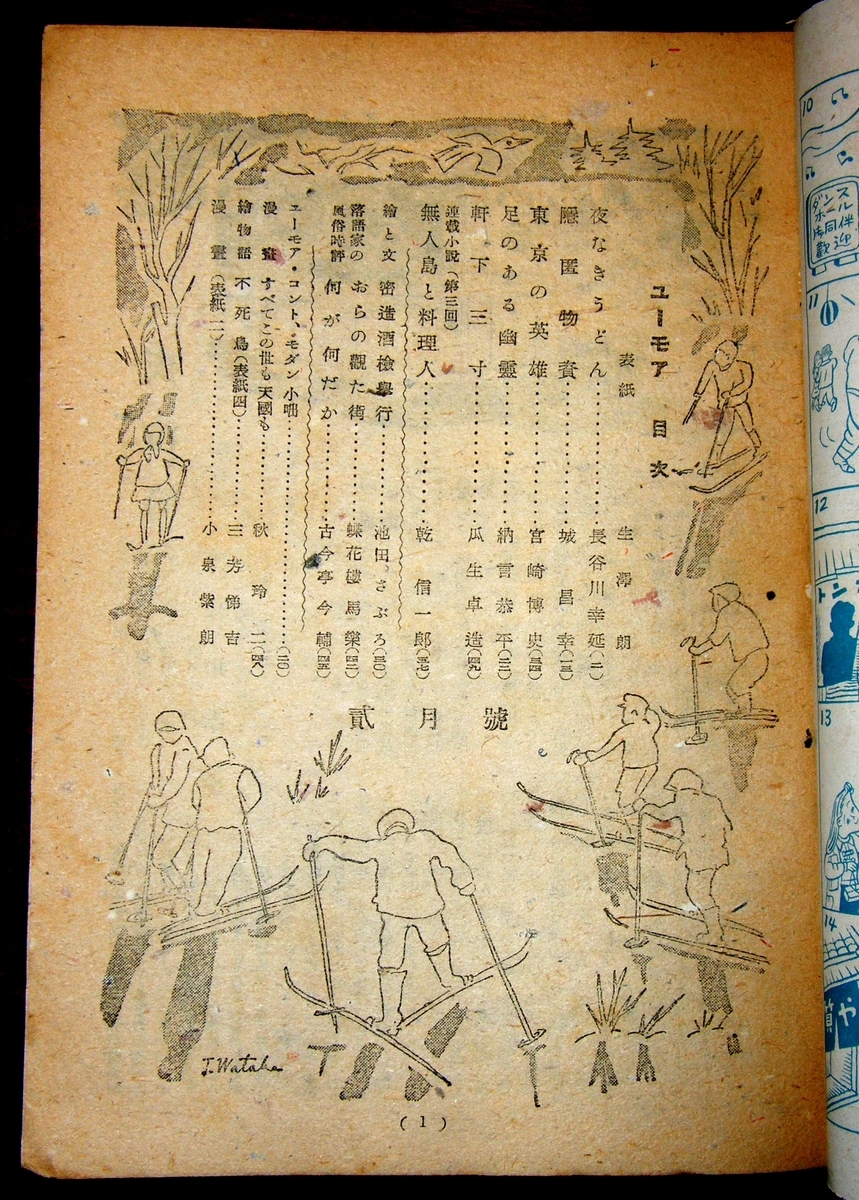 ユーモア 目次
表紙 生澤朗
夜なきうどん………長谷川幸延(二)
隱匿物資………城昌幸(一三)
東京の英雄………宮崎博史(三四)
足のある幽靈………納言恭平(二二)
軒下三寸………瓜生卓造(四九)
連載小説(第三回)
無人島と料理人………乾信一郎(五七)
繪と文 密造酒檢擧行………池田さぶろ(三〇)
落語家の おらの觀た街………蝶花樓馬樂(四二)
風俗時評 何が何だか………古今亭今輔(四五)
ユーモア・コント、モダン小咄………(二〇)
漫畫 すべてこの世も天國も………秋玲二(四八)
繪物語 不死鳥(表紙四)………三芳悌吉
漫畫(表紙二)………小泉紫朗
貳月號
J.Watabe
(1)
10
ダンス
ホール
同伴
歡迎
11
12
トン
13
14
質や